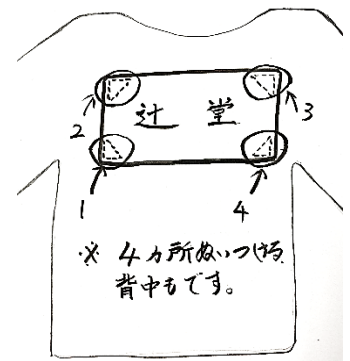 2 辻 堂 3
1 4
※ 4ヵ所ぬいつける
背中もです。